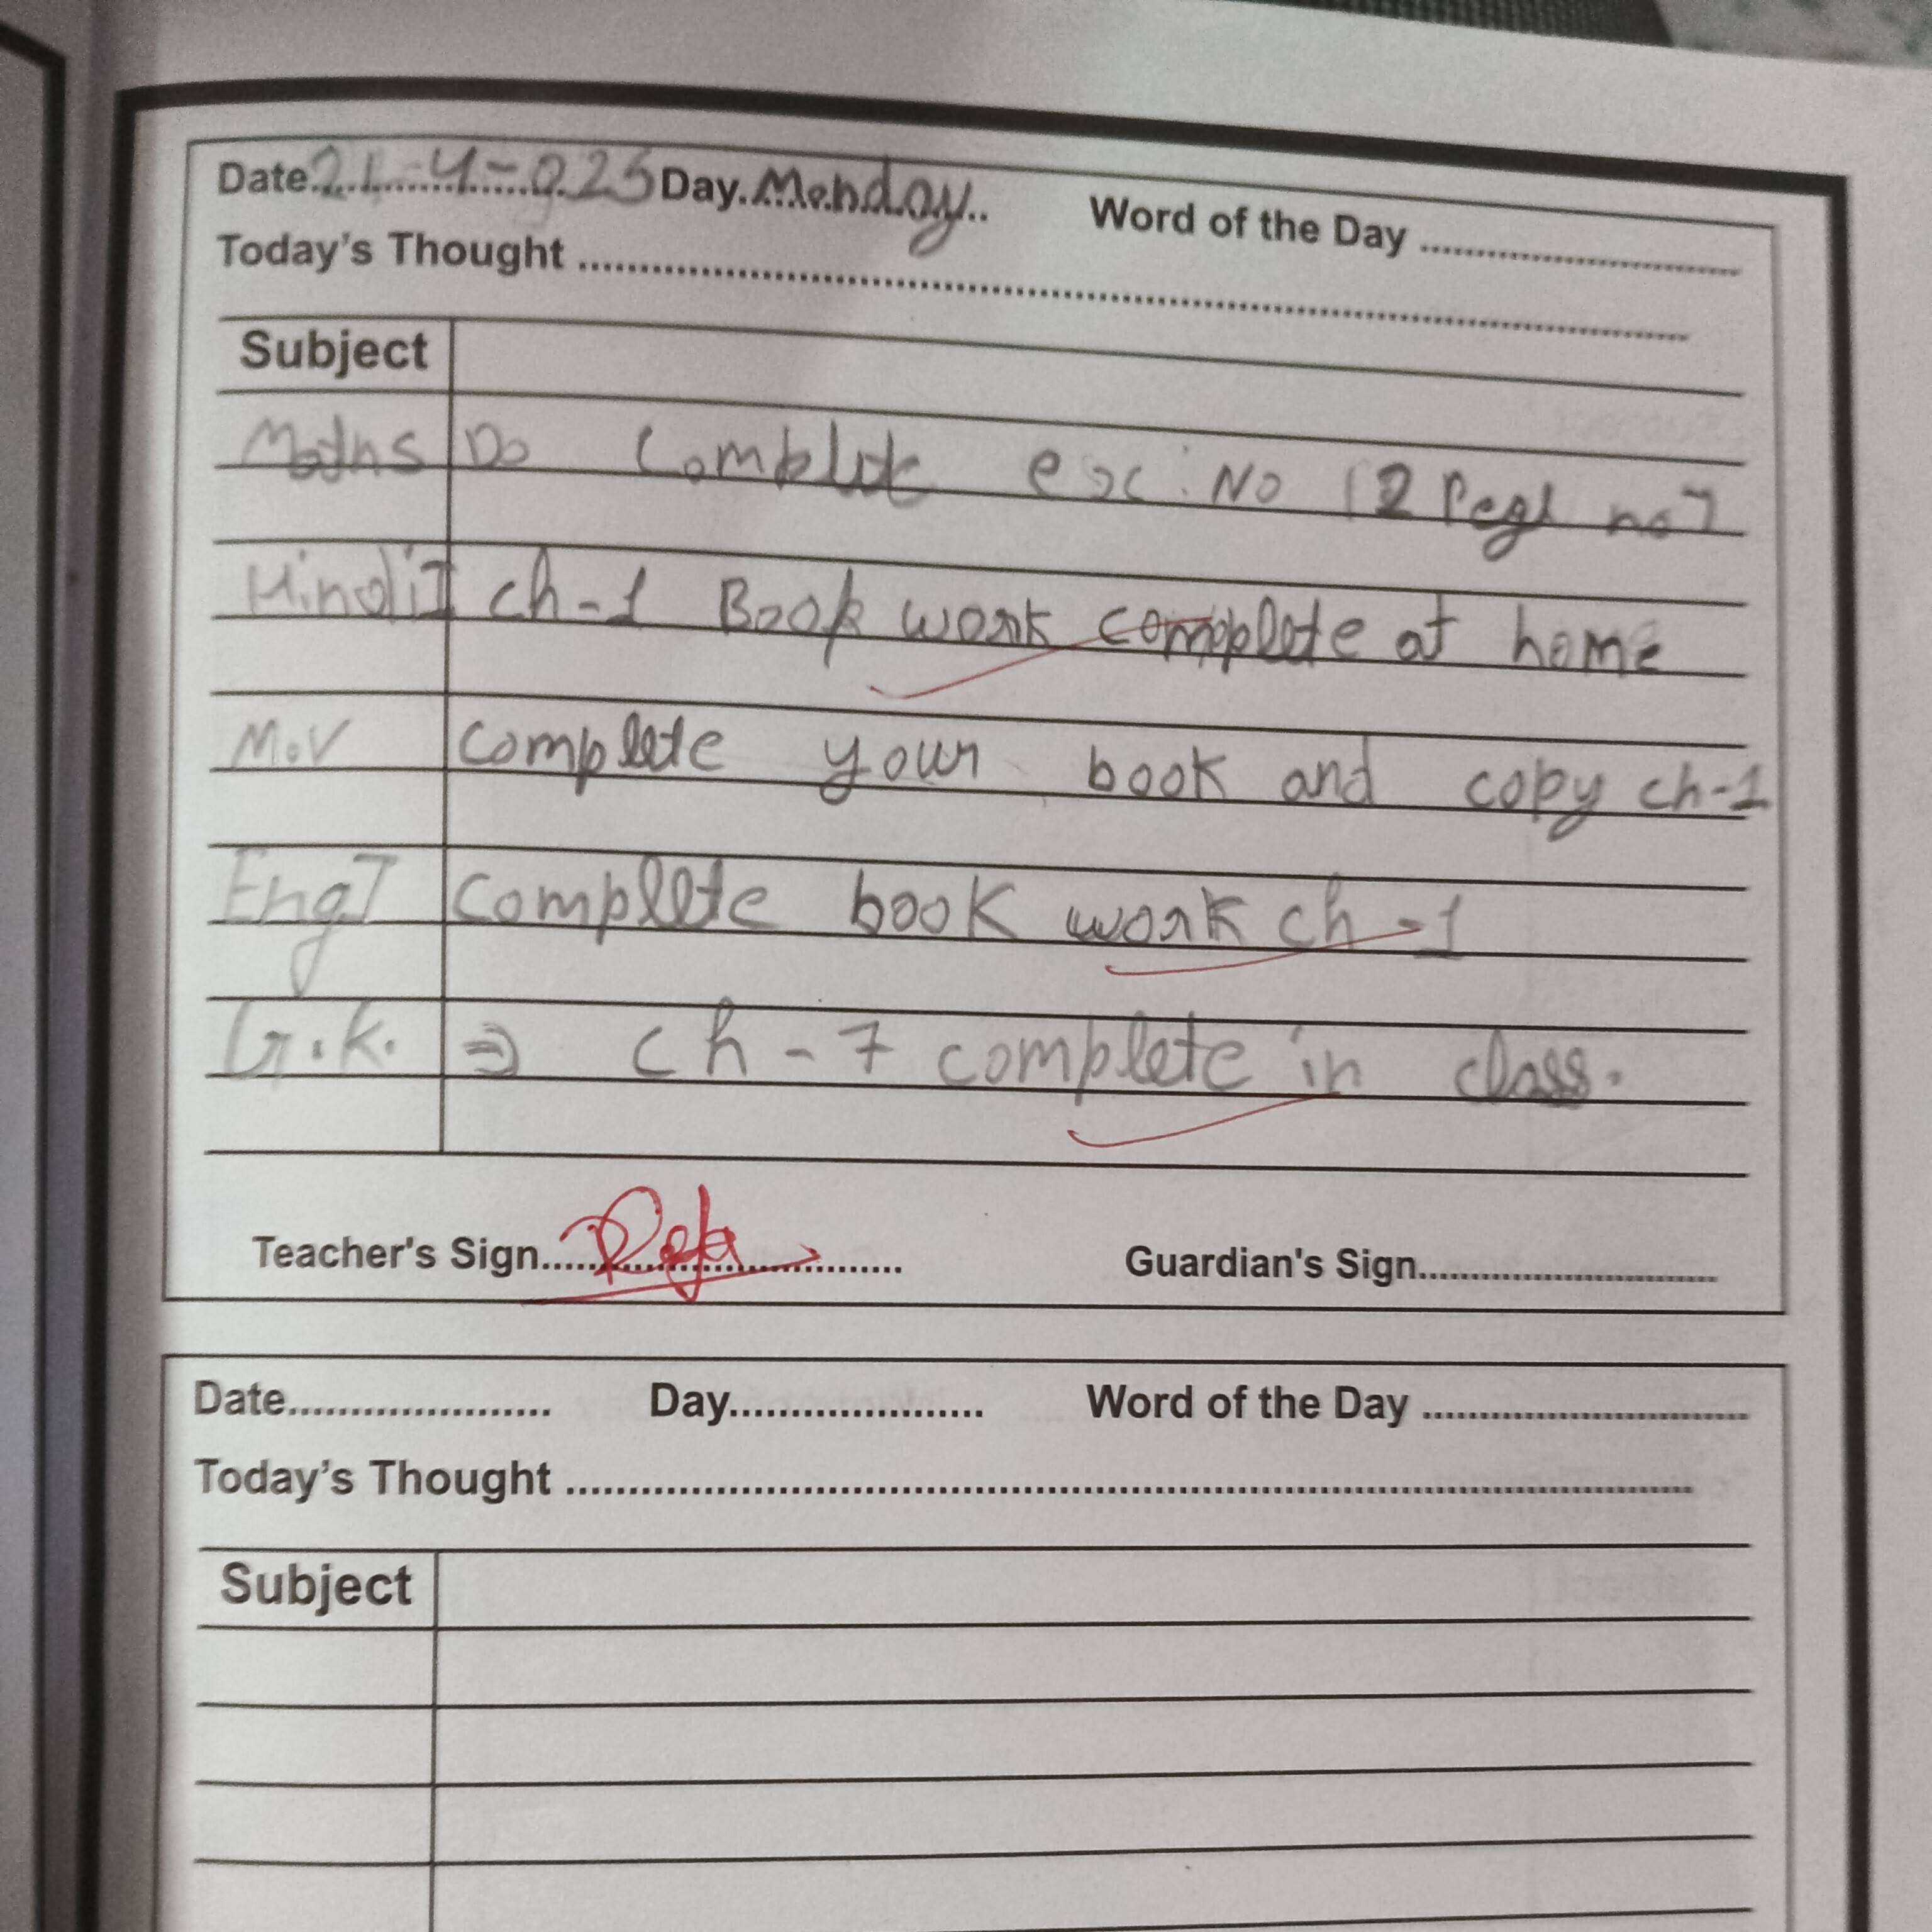 Date 21-4-025 Day Monday Word of the Day
Today's Thought
Subject
Maths Do Complete exc: No 12 Page no 7
Hindi I ch-1 Book work complete at home
M.V complete your book and copy ch-1
Eng I complete book work ch-1
G.K. ⇒ ch-7 complete in class.
Teacher's Sign Guardian's Sign
Date Day Word of the Day
Today's Thought
Subject